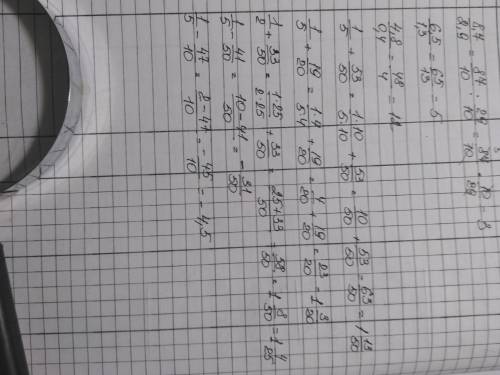 8,7/2,9 = 87/10 : 29/10 = 87/10 · 10/29 = 3
6,5/1,3 = 65/13 = 5
4,8/0,4 = 48/4 = 12
1/5 + 53/50 = 1·10/5·10 + 53/50 = 10/50 + 53/50 = 63/50 = 1 13/50
1/5 + 19/20 = 1·4/5·4 + 19/20 = 4/20 + 19/20 = 23/20 = 1 3/20
1/2 + 33/50 = 1·25/2·25 + 33/50 = 25+33/50 = 58/50 = 1 8/50 = 1 4/25
1/5 - 41/50 = 10-41/50 = - 31/50
1/5 - 47/10 = 2-47/10 = - 45/10 = - 4,5